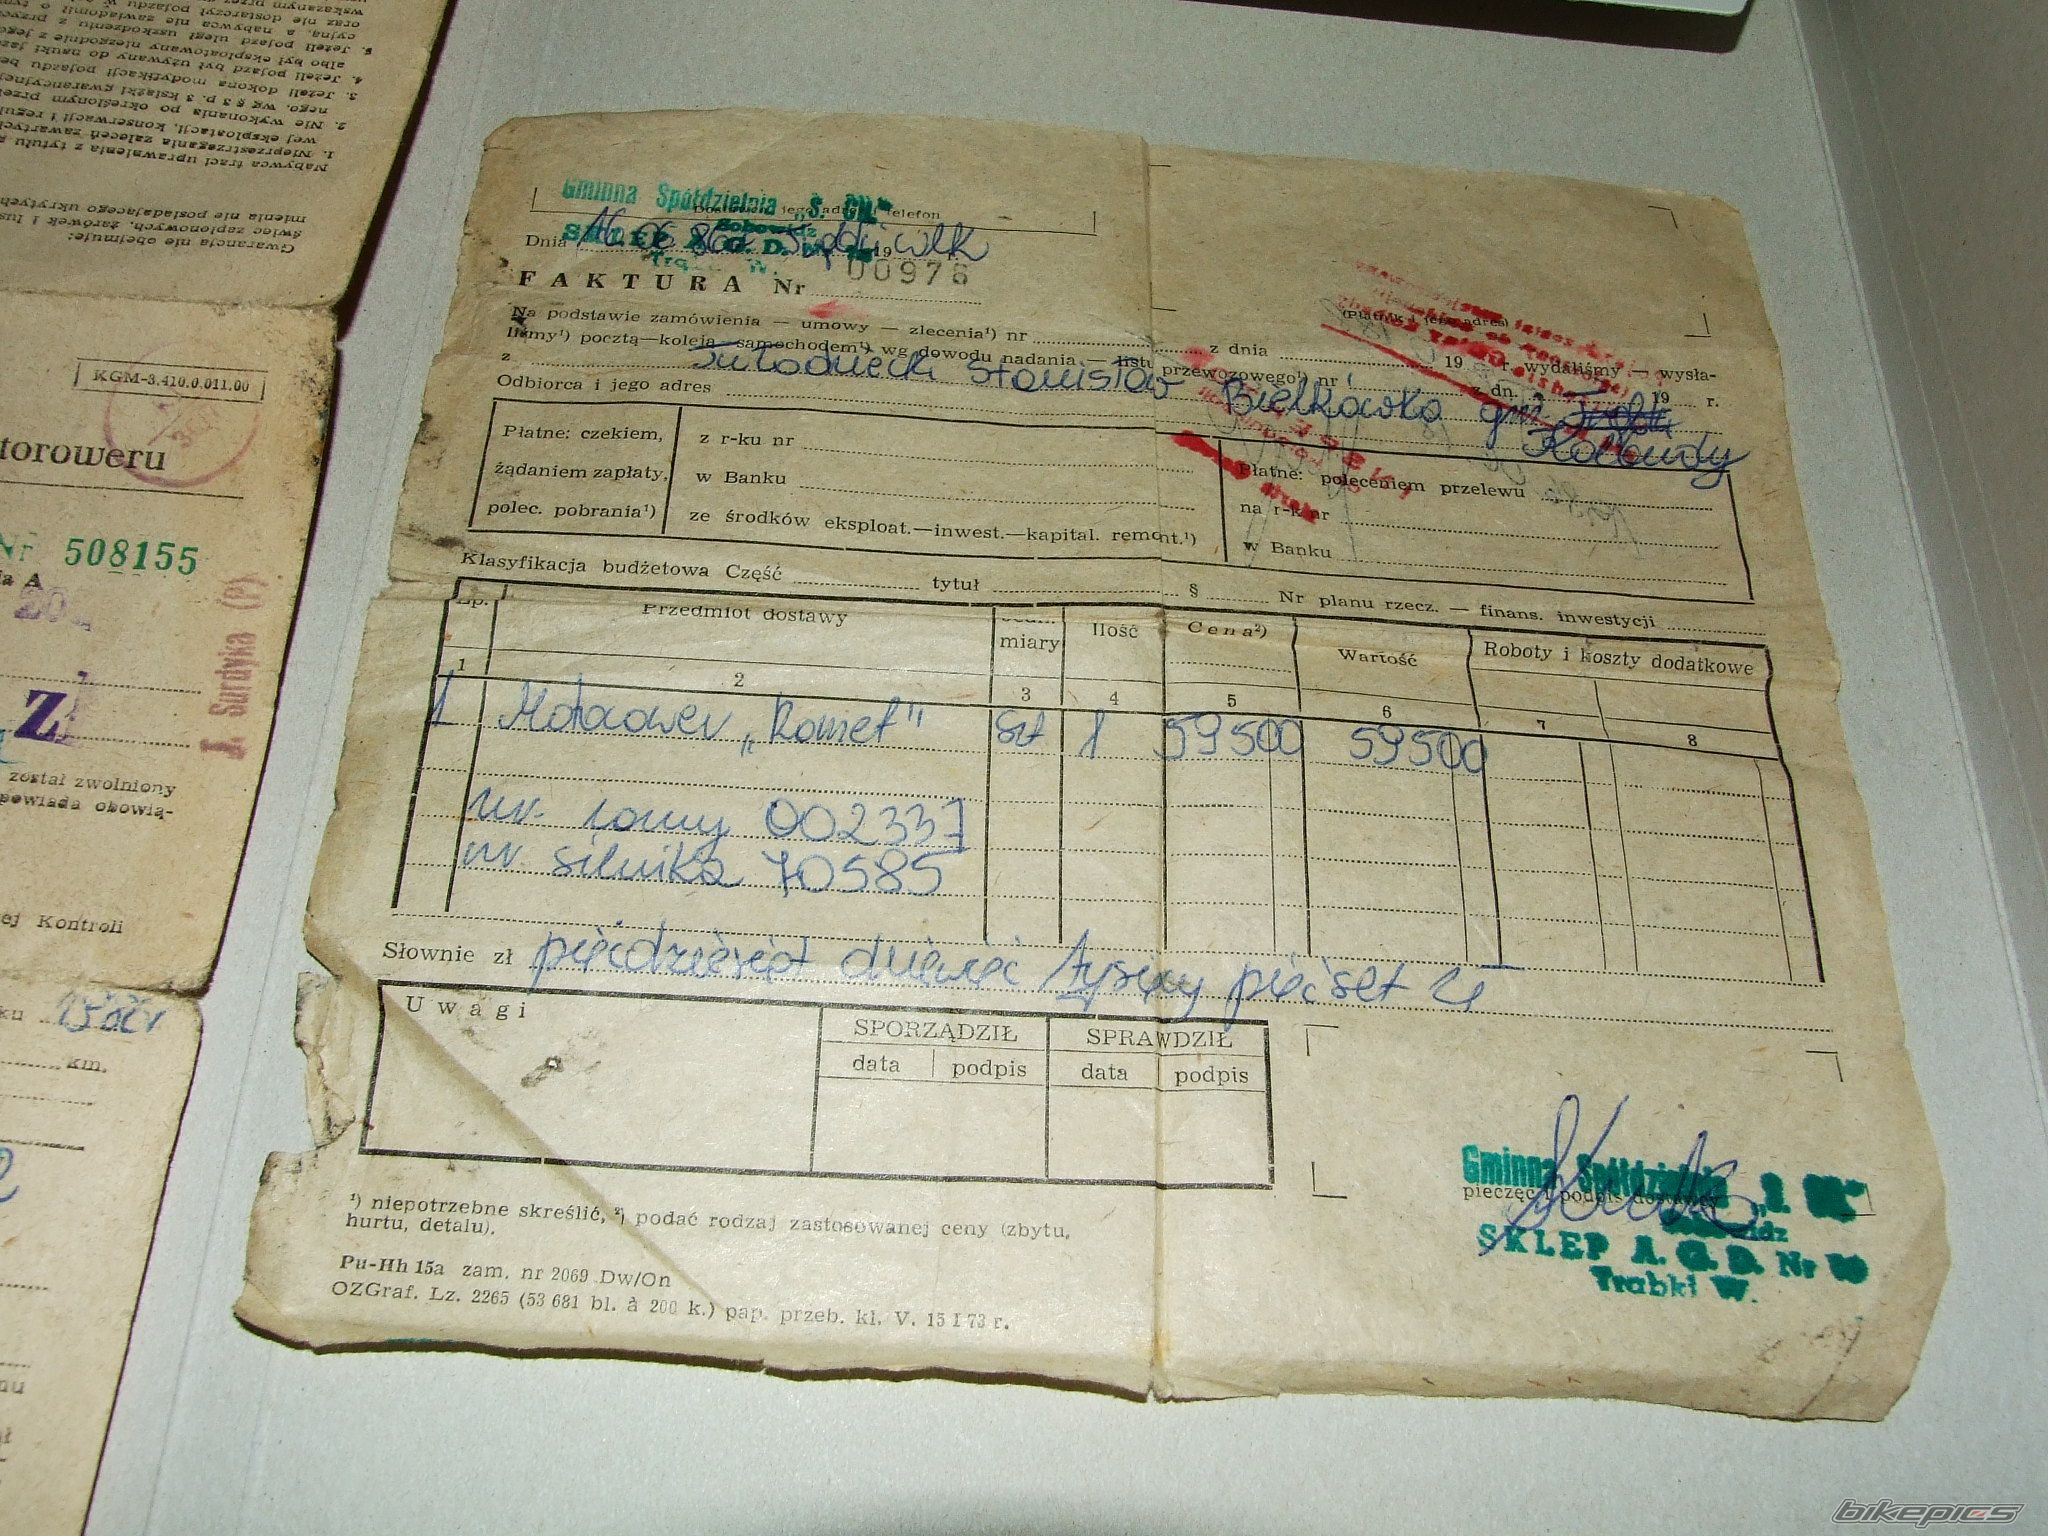 Nabywca traci uprawnienia z tytułu
1. Nieprzestrzegania zaleceń zawartych
wej eksploatacji, konserwacji i regu
2. Nie wykonania po określonym prze
nego, wg § 3 p. 3 książki gwarancyjnej
3. Jeżeli dokona modyfikacji pojazdu be
4. Jeżeli pojazd był używany do nauki jaz
albo był eksploatowany niezgodnie z jego
5. Jeżeli pojazd uległ uszkodzeniu z
cyjną, a nabywca nie zawiadomił o tym
oraz nie dostarczył pojazdu w
wskazanym przez
Gwarancja nie obejmuje:
świec zapłonowych, żarówek i lus
mienia nie posiadającego ukrytych
KGM-3.410.0.011.00
toroweru
Nr 508155
J. Surdyka (P)
został zwolniony
powiada obowią-
ej Kontroli
km.
Gminna Spółdzielnia „S. CH."
jego adres i telefon
Dnia 16.06 19
FAKTURA Nr 00976
Na podstawie zamówienia — umowy — zlecenia¹) nr z dnia 19 r. wydaliśmy — wysła-
liśmy¹) pocztą—koleją—samochodem¹) wg dowodu nadania — listu przewozowego¹) nr z dn. 19 r.
z
Odbiorca i jego adres Stanisław Bielkówko gm. Kolbudy
Płatne: czekiem,
żądaniem zapłaty,
polec. pobrania¹)
z r-ku nr
w Banku
ze środków eksploat.—inwest.—kapital. remont.¹)
Płatne: poleceniem przelewu
na r-k nr
w Banku
Klasyfikacja budżetowa Część tytuł § Nr planu rzecz. — finans. inwestycji
Lp. Przedmiot dostawy miary Ilość Cena²) Wartość Roboty i koszty dodatkowe
1 2 3 4 5 6 7 8
1 Motorower „Romet" szt 1 59500 59500
nr. ramy 002337
nr silnika 70585
Słownie zł pięćdziesiąt dziewięć tysięcy pięćset zł
Uwagi
SPORZĄDZIŁ SPRAWDZIŁ
data podpis data podpis
Gminna Spółdzielnia „S. CH."
pieczęć i podpis dostawcy
SKLEP A. G. D. Nr
Trąbki W.
¹) niepotrzebne skreślić, ²) podać rodzaj zastosowanej ceny (zbytu,
hurtu, detalu).
Pu-Hh 15a zam. nr 2069 Dw/On
OZGraf. Lz. 2265 (53 681 bl. à 200 k.) pap. przeb. kl. V. 15 I 73 r.
bikepics